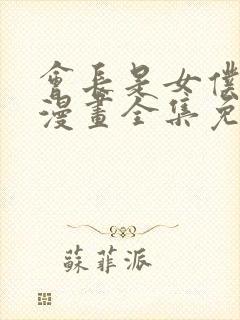 會長是女僕
漫畫全集免
蘇菲派